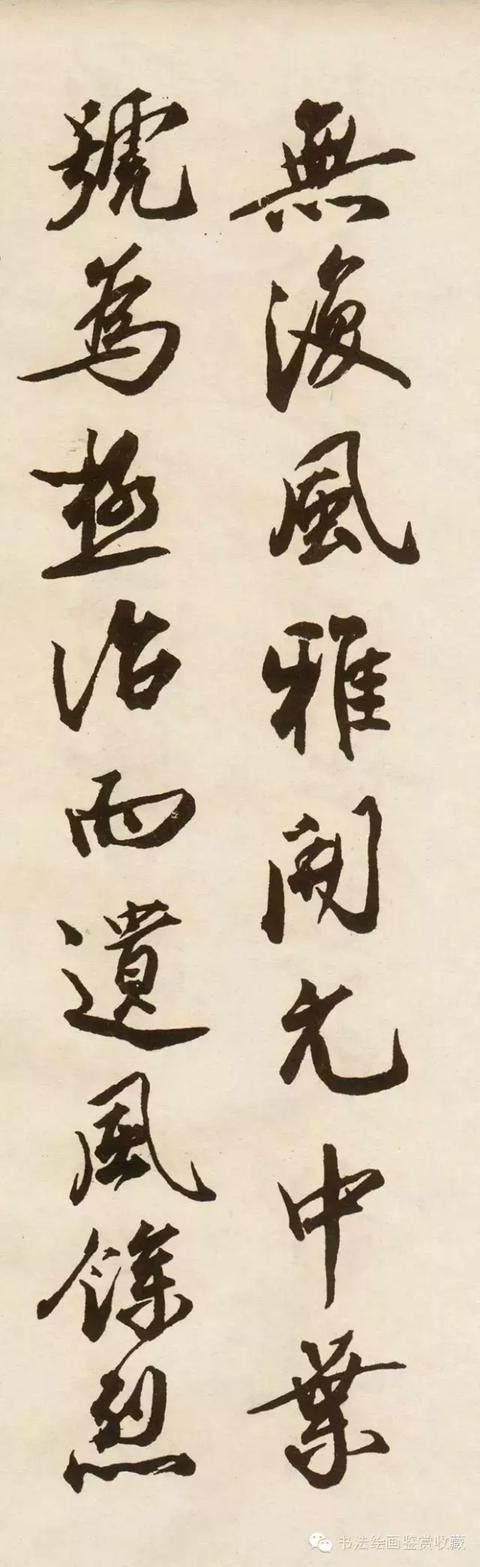 無復風雅開元中葉
號為極治而遺風餘烈
书法绘画鉴赏收藏